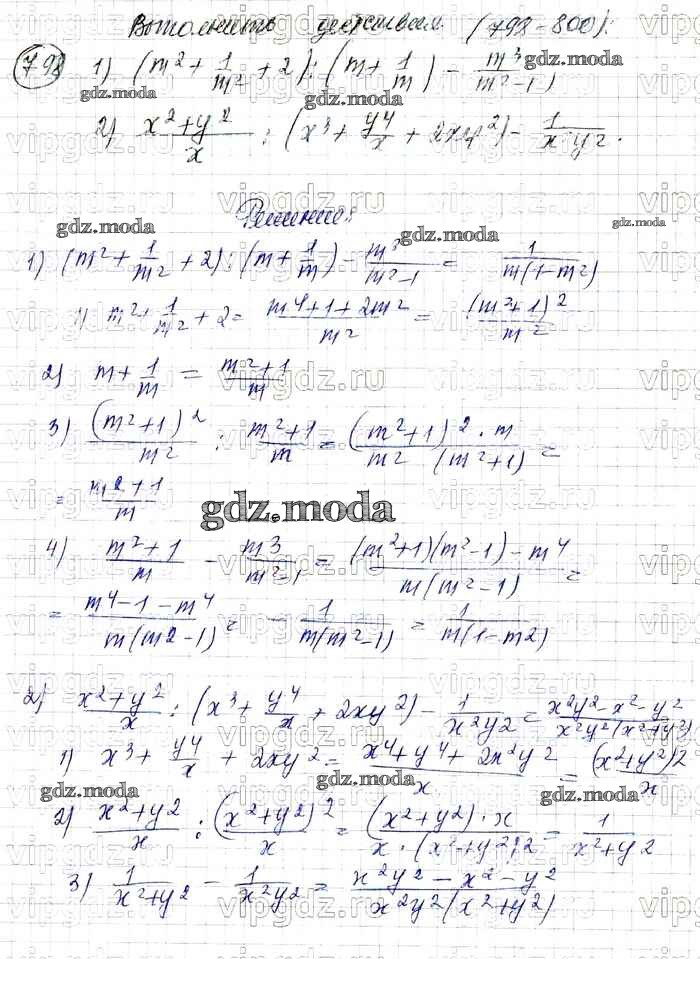 Выполнить действия (798-800):
798 1) (m² + 1/m² + 2) : (m + 1/m) - m³/(m²-1)
2) (x²+y²)/x : (x³ + y⁴/x + 2xy²) - 1/(x²y²).
Решение:
1) (m² + 1/m² + 2) : (m + 1/m) - m³/(m²-1) = 1/(m(1-m²))
1) m² + 1/m² + 2 = (m⁴+1+2m²)/m² = (m²+1)²/m²
2) m + 1/m = (m²+1)/m
3) (m²+1)²/m² : (m²+1)/m = ((m²+1)² · m)/(m² (m²+1)) =
= (m²+1)/m
4) (m²+1)/m - m³/(m²-1) = ((m²+1)(m²-1) - m⁴)/(m(m²-1)) =
= (m⁴-1-m⁴)/(m(m²-1)) = - 1/(m(m²-1)) = 1/(m(1-m²))
2) (x²+y²)/x : (x³ + y⁴/x + 2xy²) - 1/(x²y²) = (x²y²-x²-y²)/(x²y²(x²+y²))
1) x³ + y⁴/x + 2xy² = (x⁴+y⁴+2x²y²)/x = (x²+y²)²/x
2) (x²+y²)/x : (x²+y²)²/x = ((x²+y²) · x)/(x · (x²+y²)²) = 1/(x²+y²)
3) 1/(x²+y²) - 1/(x²y²) = (x²y²-x²-y²)/(x²y²(x²+y²))
gdz.moda
vipgdz.ru